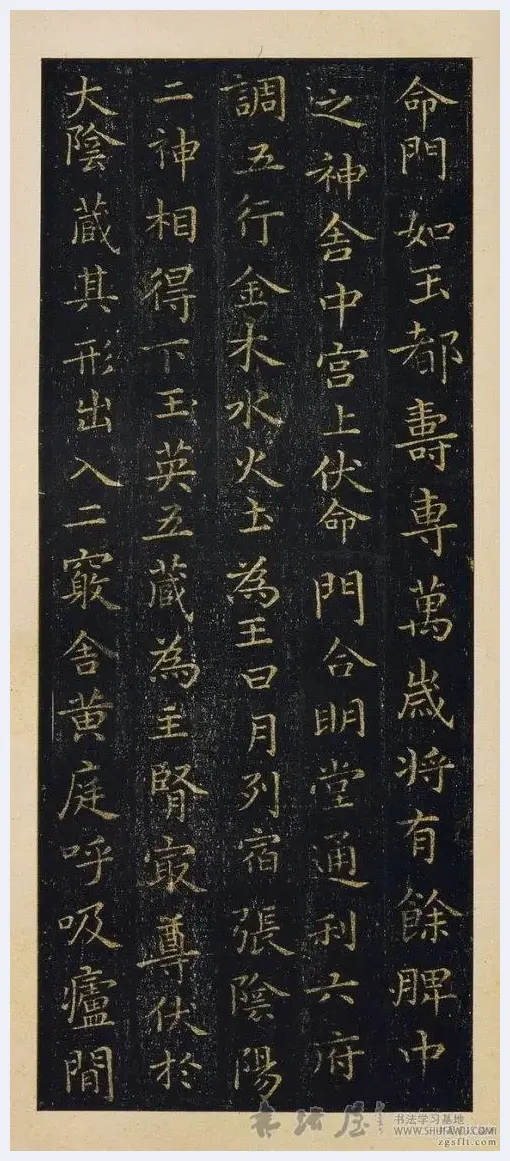 命門如玉都壽専萬歲将有餘脾中
之神舎中宫上伏命門合明堂通利六府
調五行金木水火土為王日月列宿張陰陽
二神相得下玉英五蔵為主腎㝡尊伏於
大陰蔵其形出入二竅舎黄庭呼吸廬間
书法屋
书法学习基地
WWW.SHUFAWU.COM
zgsflt.com